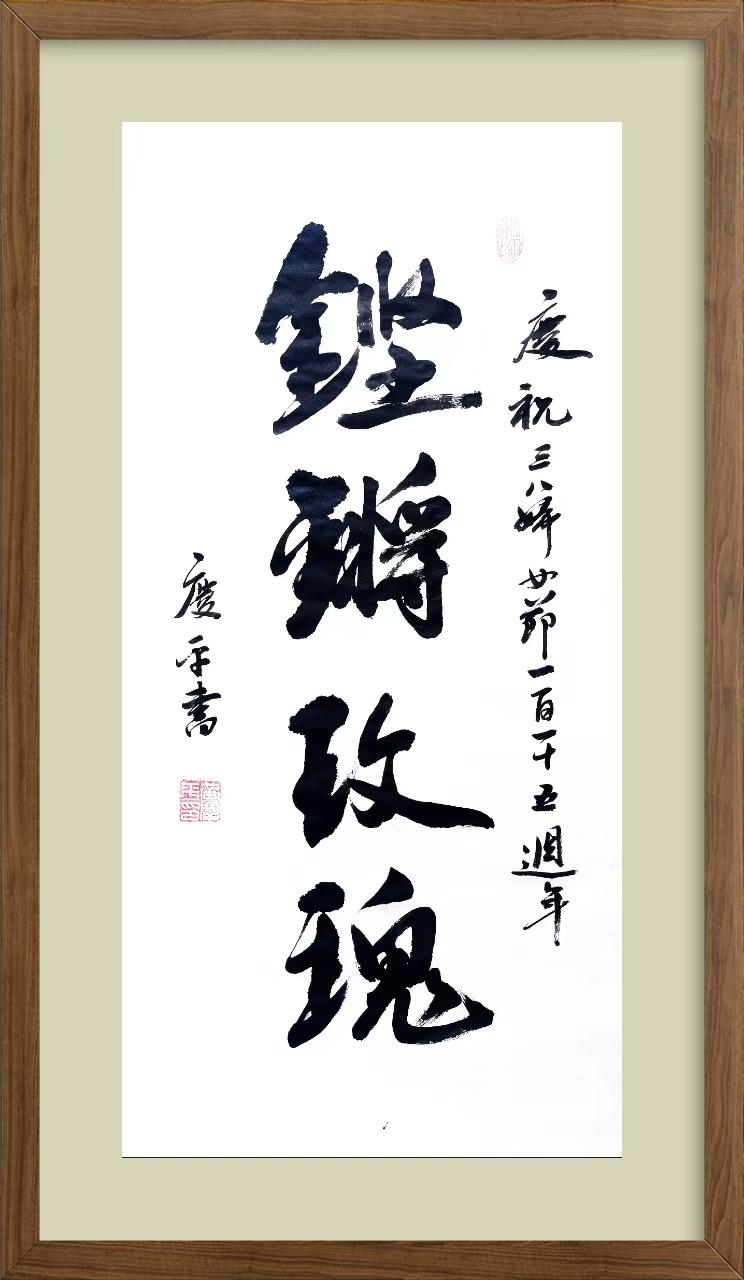 慶祝三八婦女節一百一十五週年
鏗鏘玫瑰
慶平書